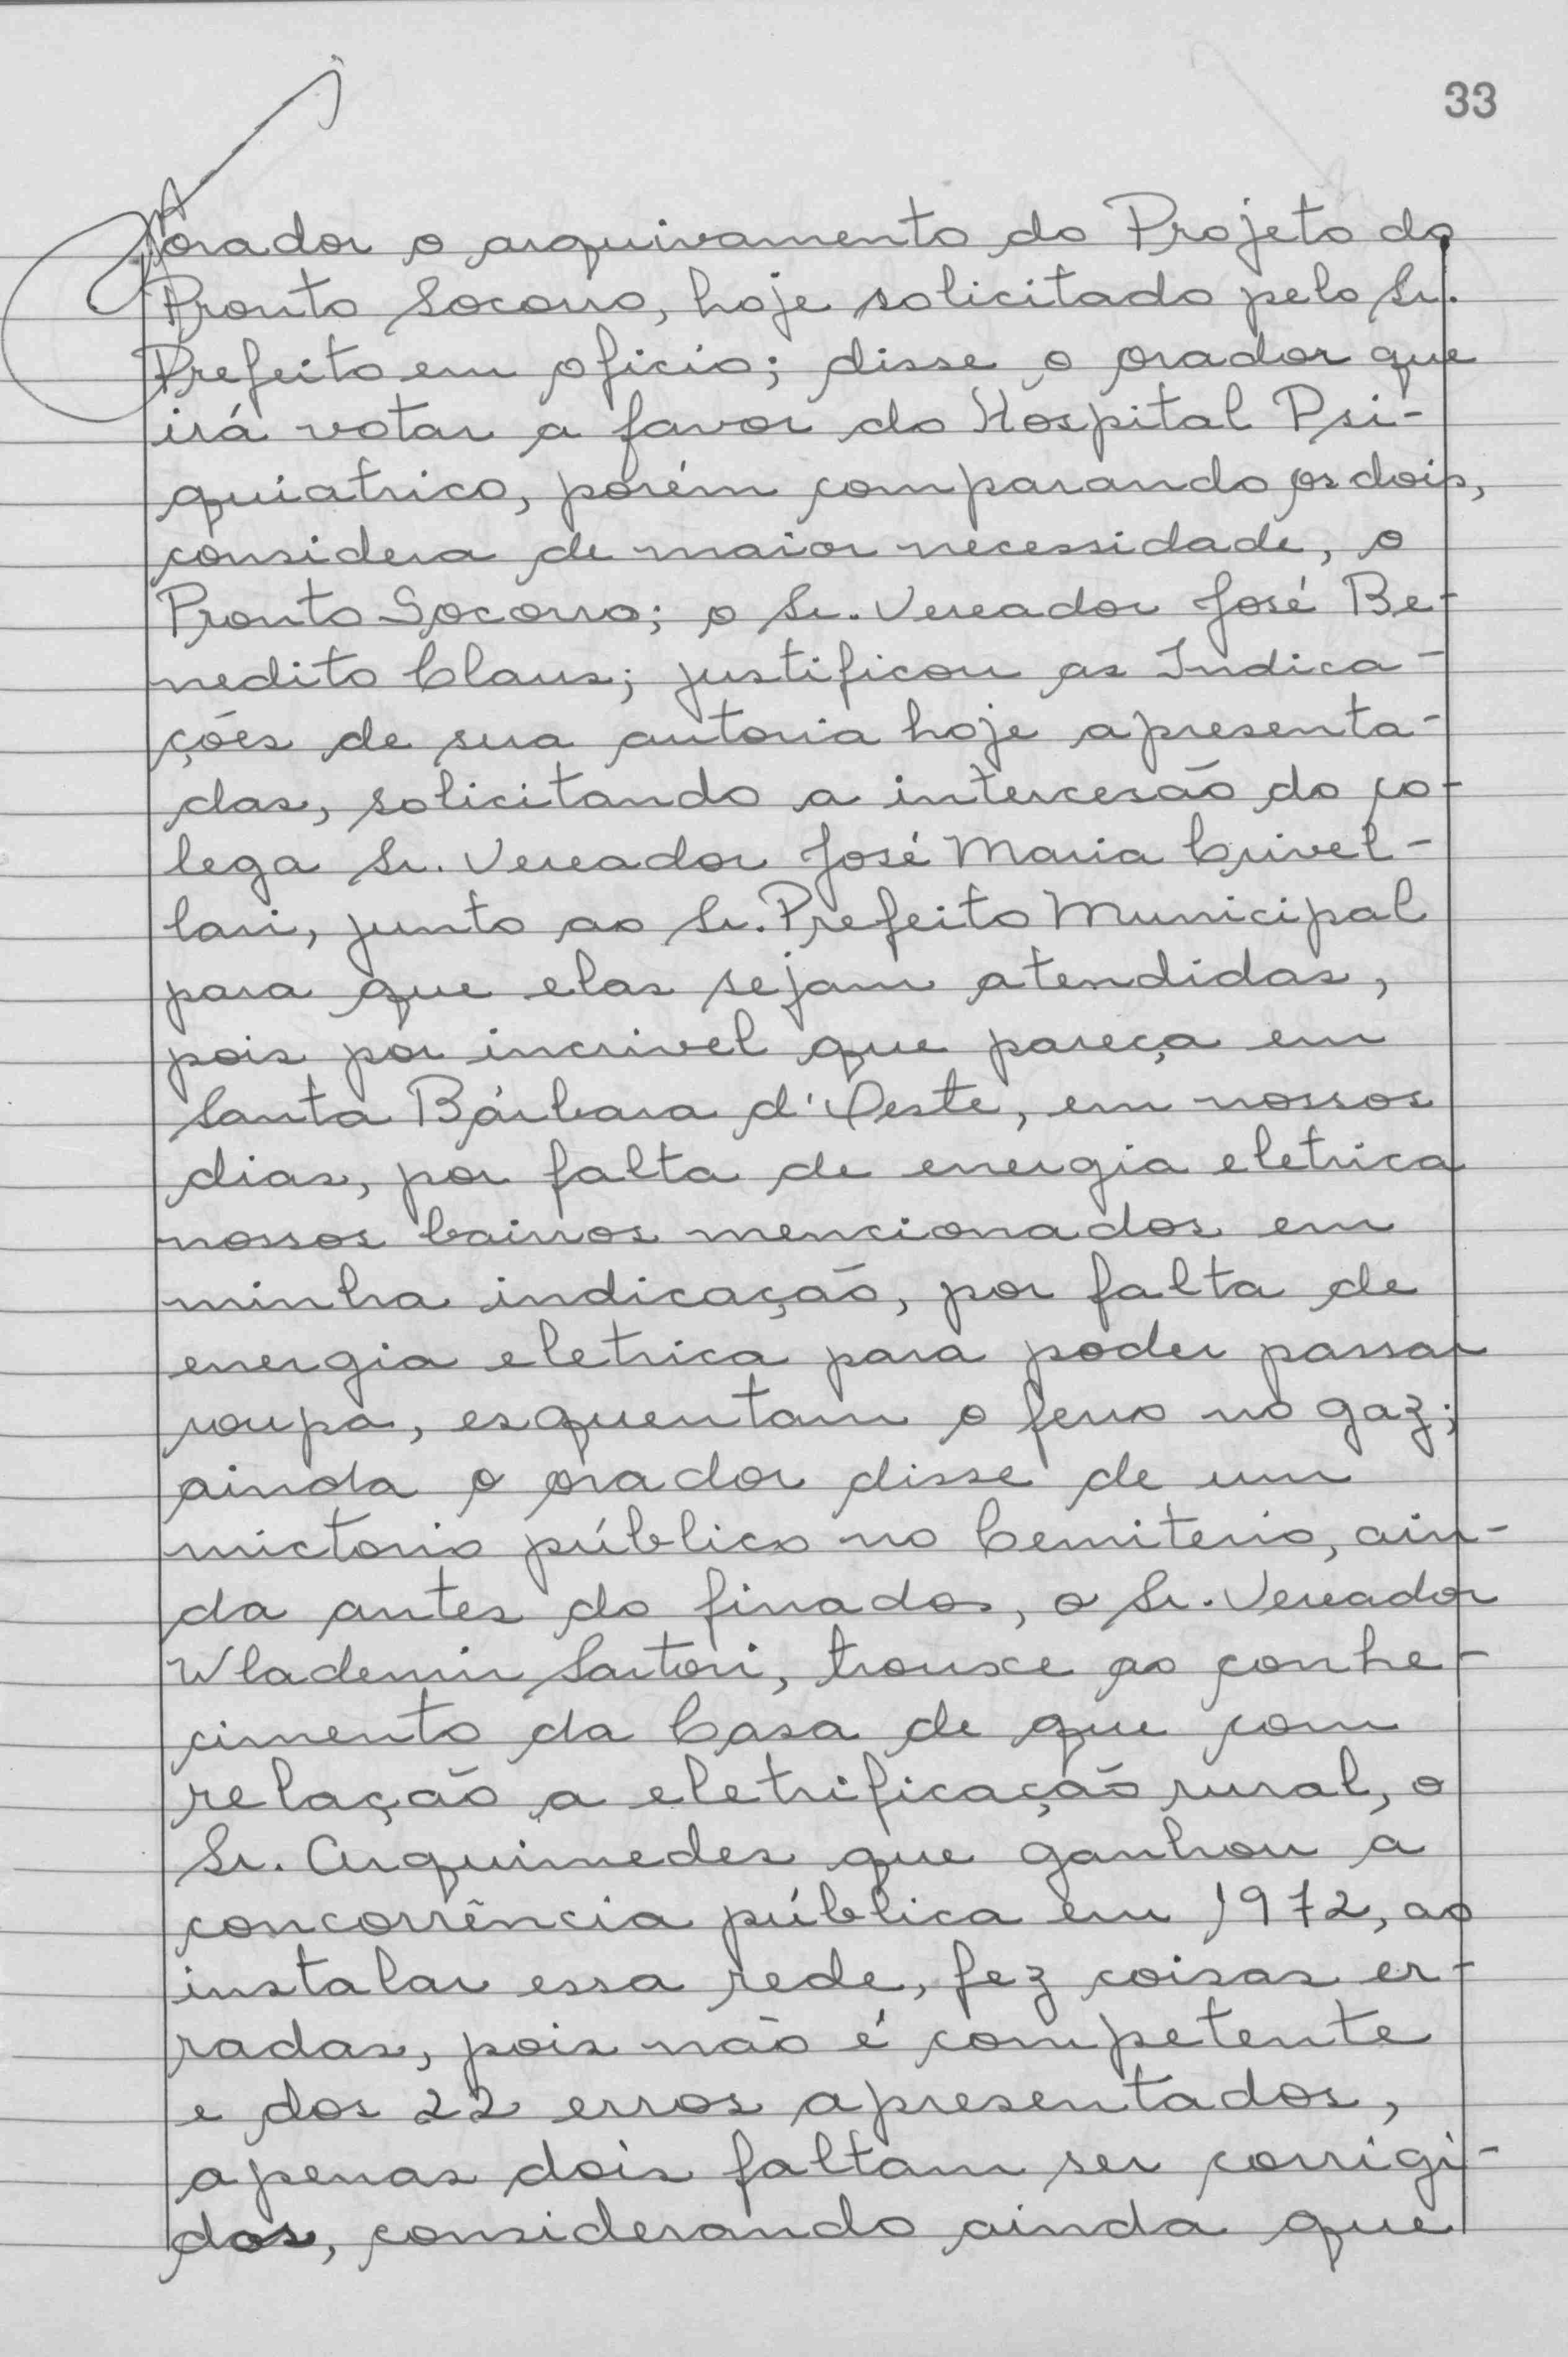 33
orador o arquivamento do Projeto do
Pronto Socorro, hoje solicitado pelo Sr.
Prefeito em oficio; disse o orador que
irá votar a favor do Hospital Psi-
quiatrico, porém comparando os dois,
considera de maior necessidade, o
Pronto Socorro; o Sr. Vereador José Be-
nedito Claus; justificou as Indica-
ções de sua autoria hoje apresenta-
das, solicitando a intercesão do co-
lega Sr. Vereador José Maria Crivel-
lari, junto ao Sr. Prefeito Municipal
para que elas sejam atendidas,
pois por incrivel que pareça em
Santa Bárbara d'Oeste, em nossos
dias, por falta de energia eletrica
nossos bairros mencionados em
minha indicação, por falta de
energia eletrica para poder passar
roupa, esquentam o ferro no gaz;
ainda o orador disse de um
mictorio público no Cemiterio, ain-
da antes do finados, o Sr. Vereador
Wlademir Sartori, trouxe ao conhe-
cimento da Casa de que com
relação a eletrificação rural, o
Sr. Arquimedes que ganhou a
concorrência pública em 1972, ao
instalar essa rede, fez coisas er-
radas, pois não é competente
e dos 22 erros apresentados,
apenas dois faltam ser corrigi-
dos, considerando ainda que